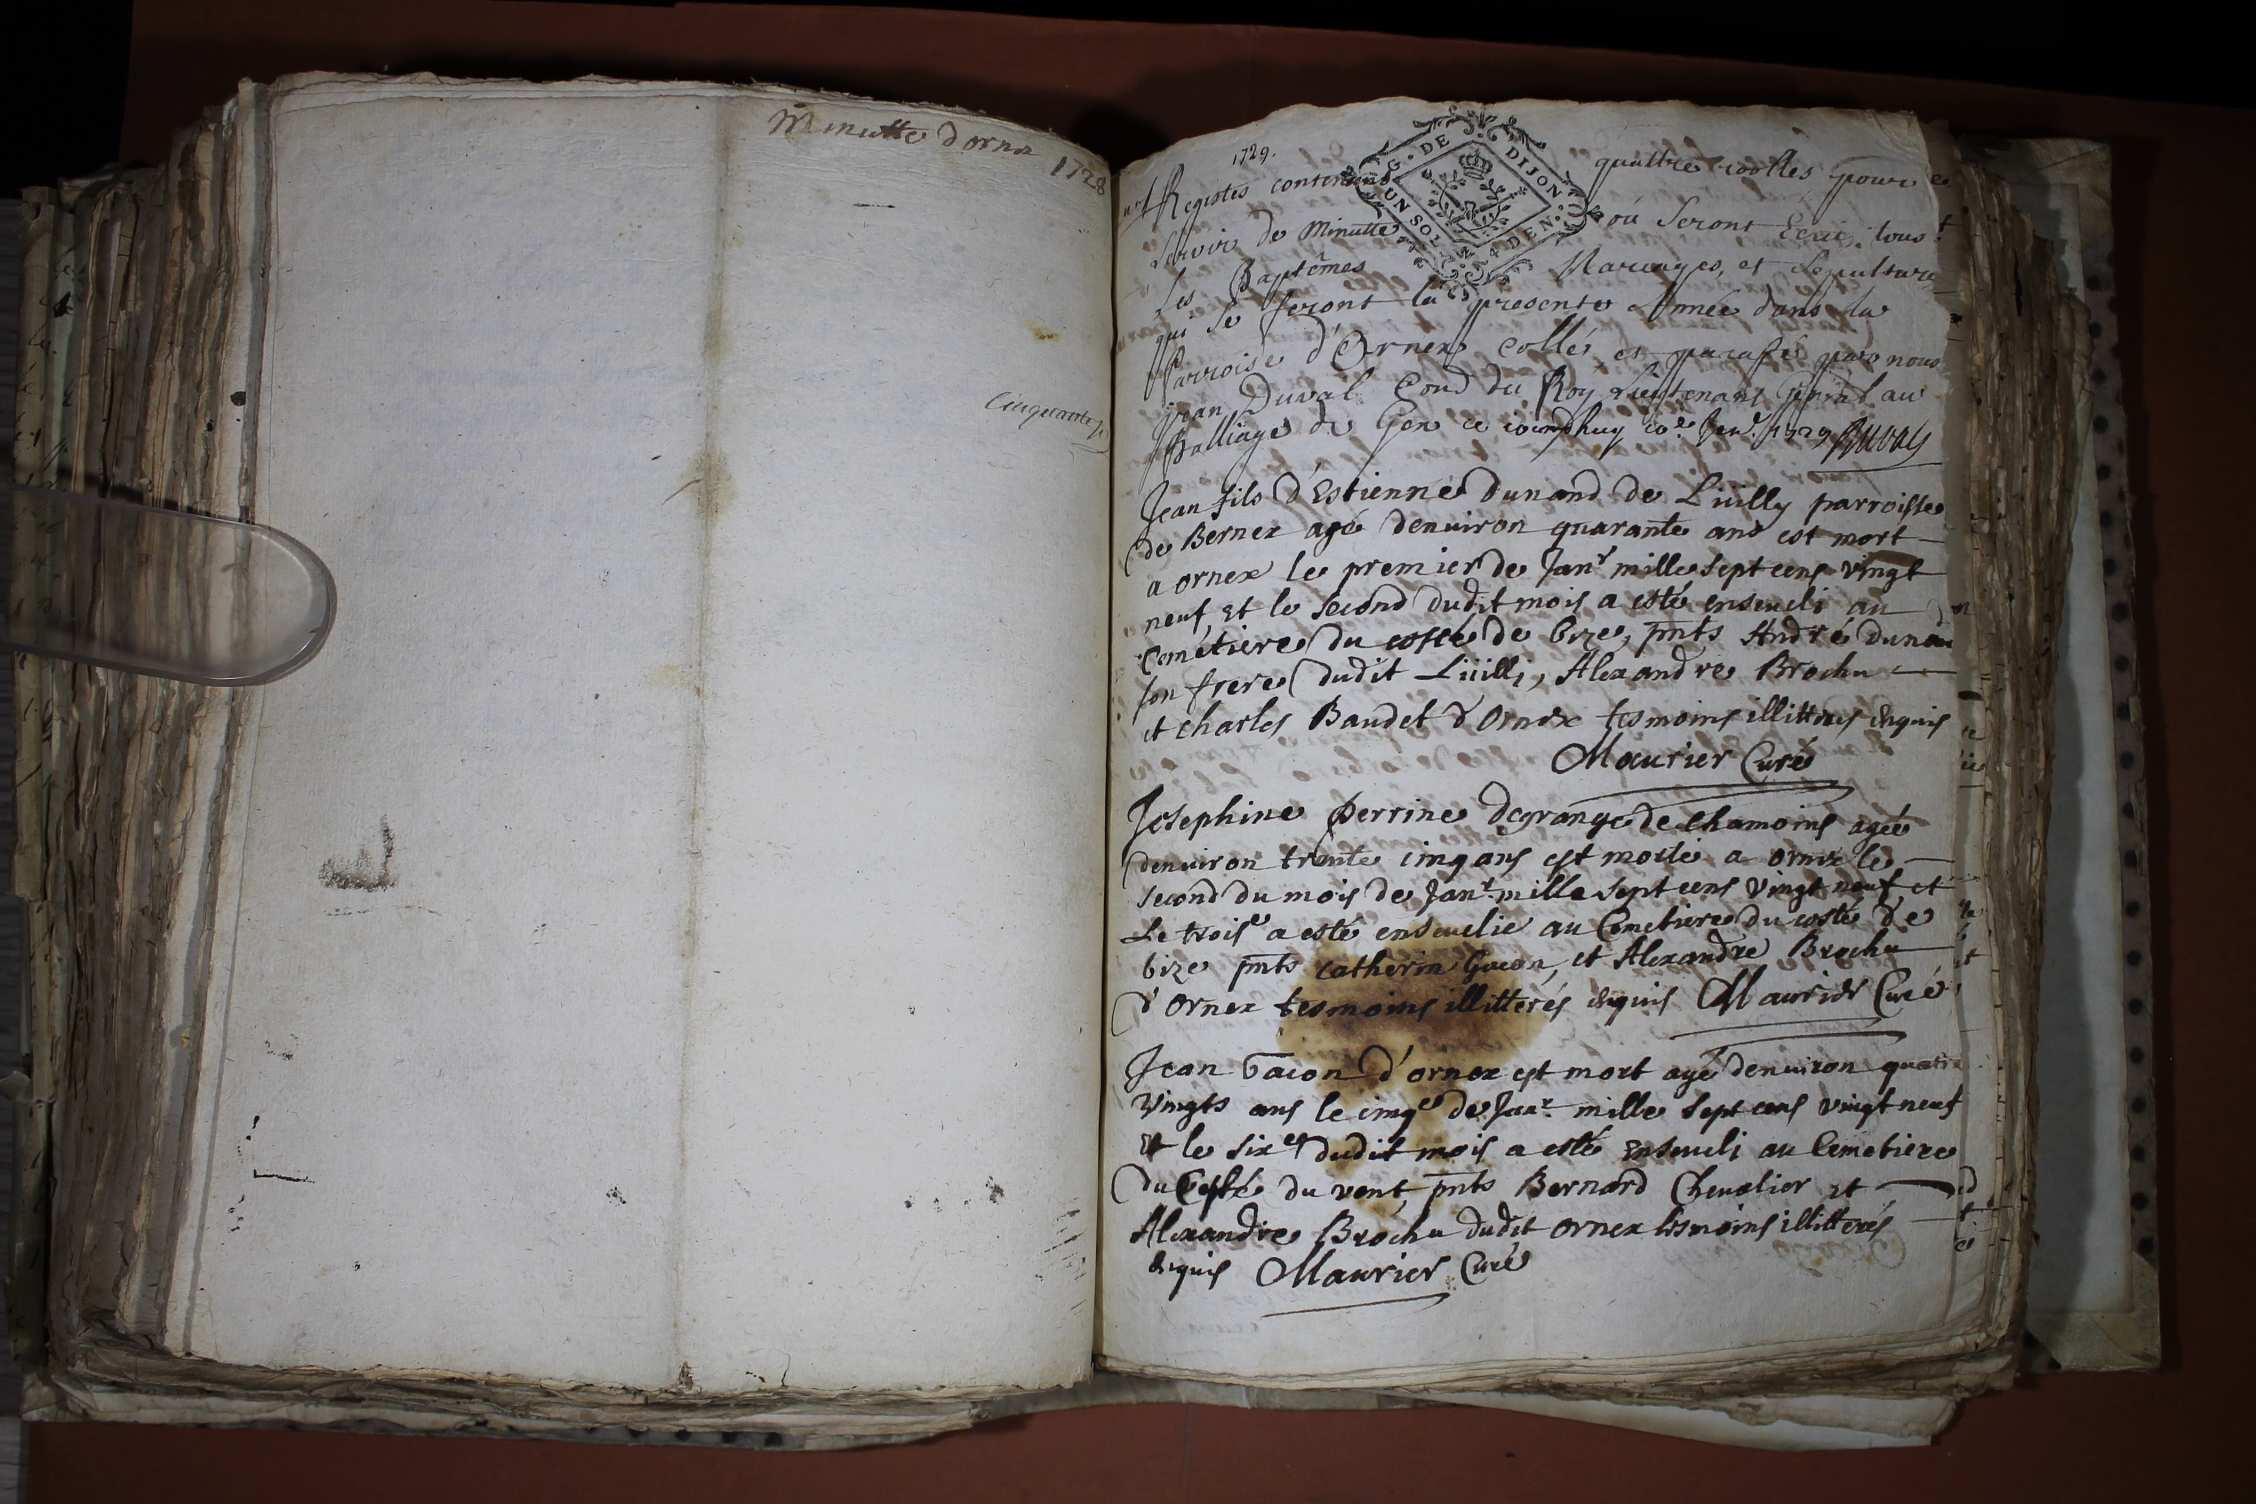 Minutte d'ornex 1728
Cinquante
1729.
G. DE DIJON
UN SOL 4 DEN.
Registes contenant quattre roolles pour
Servir de Minutte où Seront Ecrit tous
Les Baptêmes Mariages, et Sepulture
qui se feront la presente Année dans la
Parroise d'Ornex Collé et parafé par nous
Jean Duval Cons du Roy Lieutenant General au
Balliage de Gex ce jourdhuy Janr. 1729 Duval
Jean fils d'Estienne Dunand de Luilly parroisse
de Bernex agé denuiron quarante ans est mort
a ornex le premier de Janr mille sept cens vingt
neuf, Et le second dudit mois a esté enseueli au
Cemétiere du costé de bize, pnts André Dunan
son frere dudit Luilli, Alexandre Brochu
et charles Baudet d'Ornex tesmoins illitteres enquis
Maurier Curé
Josephine Perrine degrange de Chamoins agée
denuiron trente cinq ans est morte a ornex le
second du mois de Janr. mille sept cens vingt neuf et
Le troise a esté enseuelie au Cemetiere du costé de
bize pnts Catherin Gacon, et Alexandre Brochu
d'Ornex tesmoins illitterés enquis Maurier Curé
Jean Gacon d'ornex est mort agé denuiron quatre
vingts ans le cinqe de Janr. mille sept cens vingt neuf
Et le sixe dudit mois a esté Enseueli au Cemetiere
du Costé du vent, pnts Bernard Cheualier et
Alexandre Brochu dudit ornex tesmoins illitterés
enquis Maurier Curé